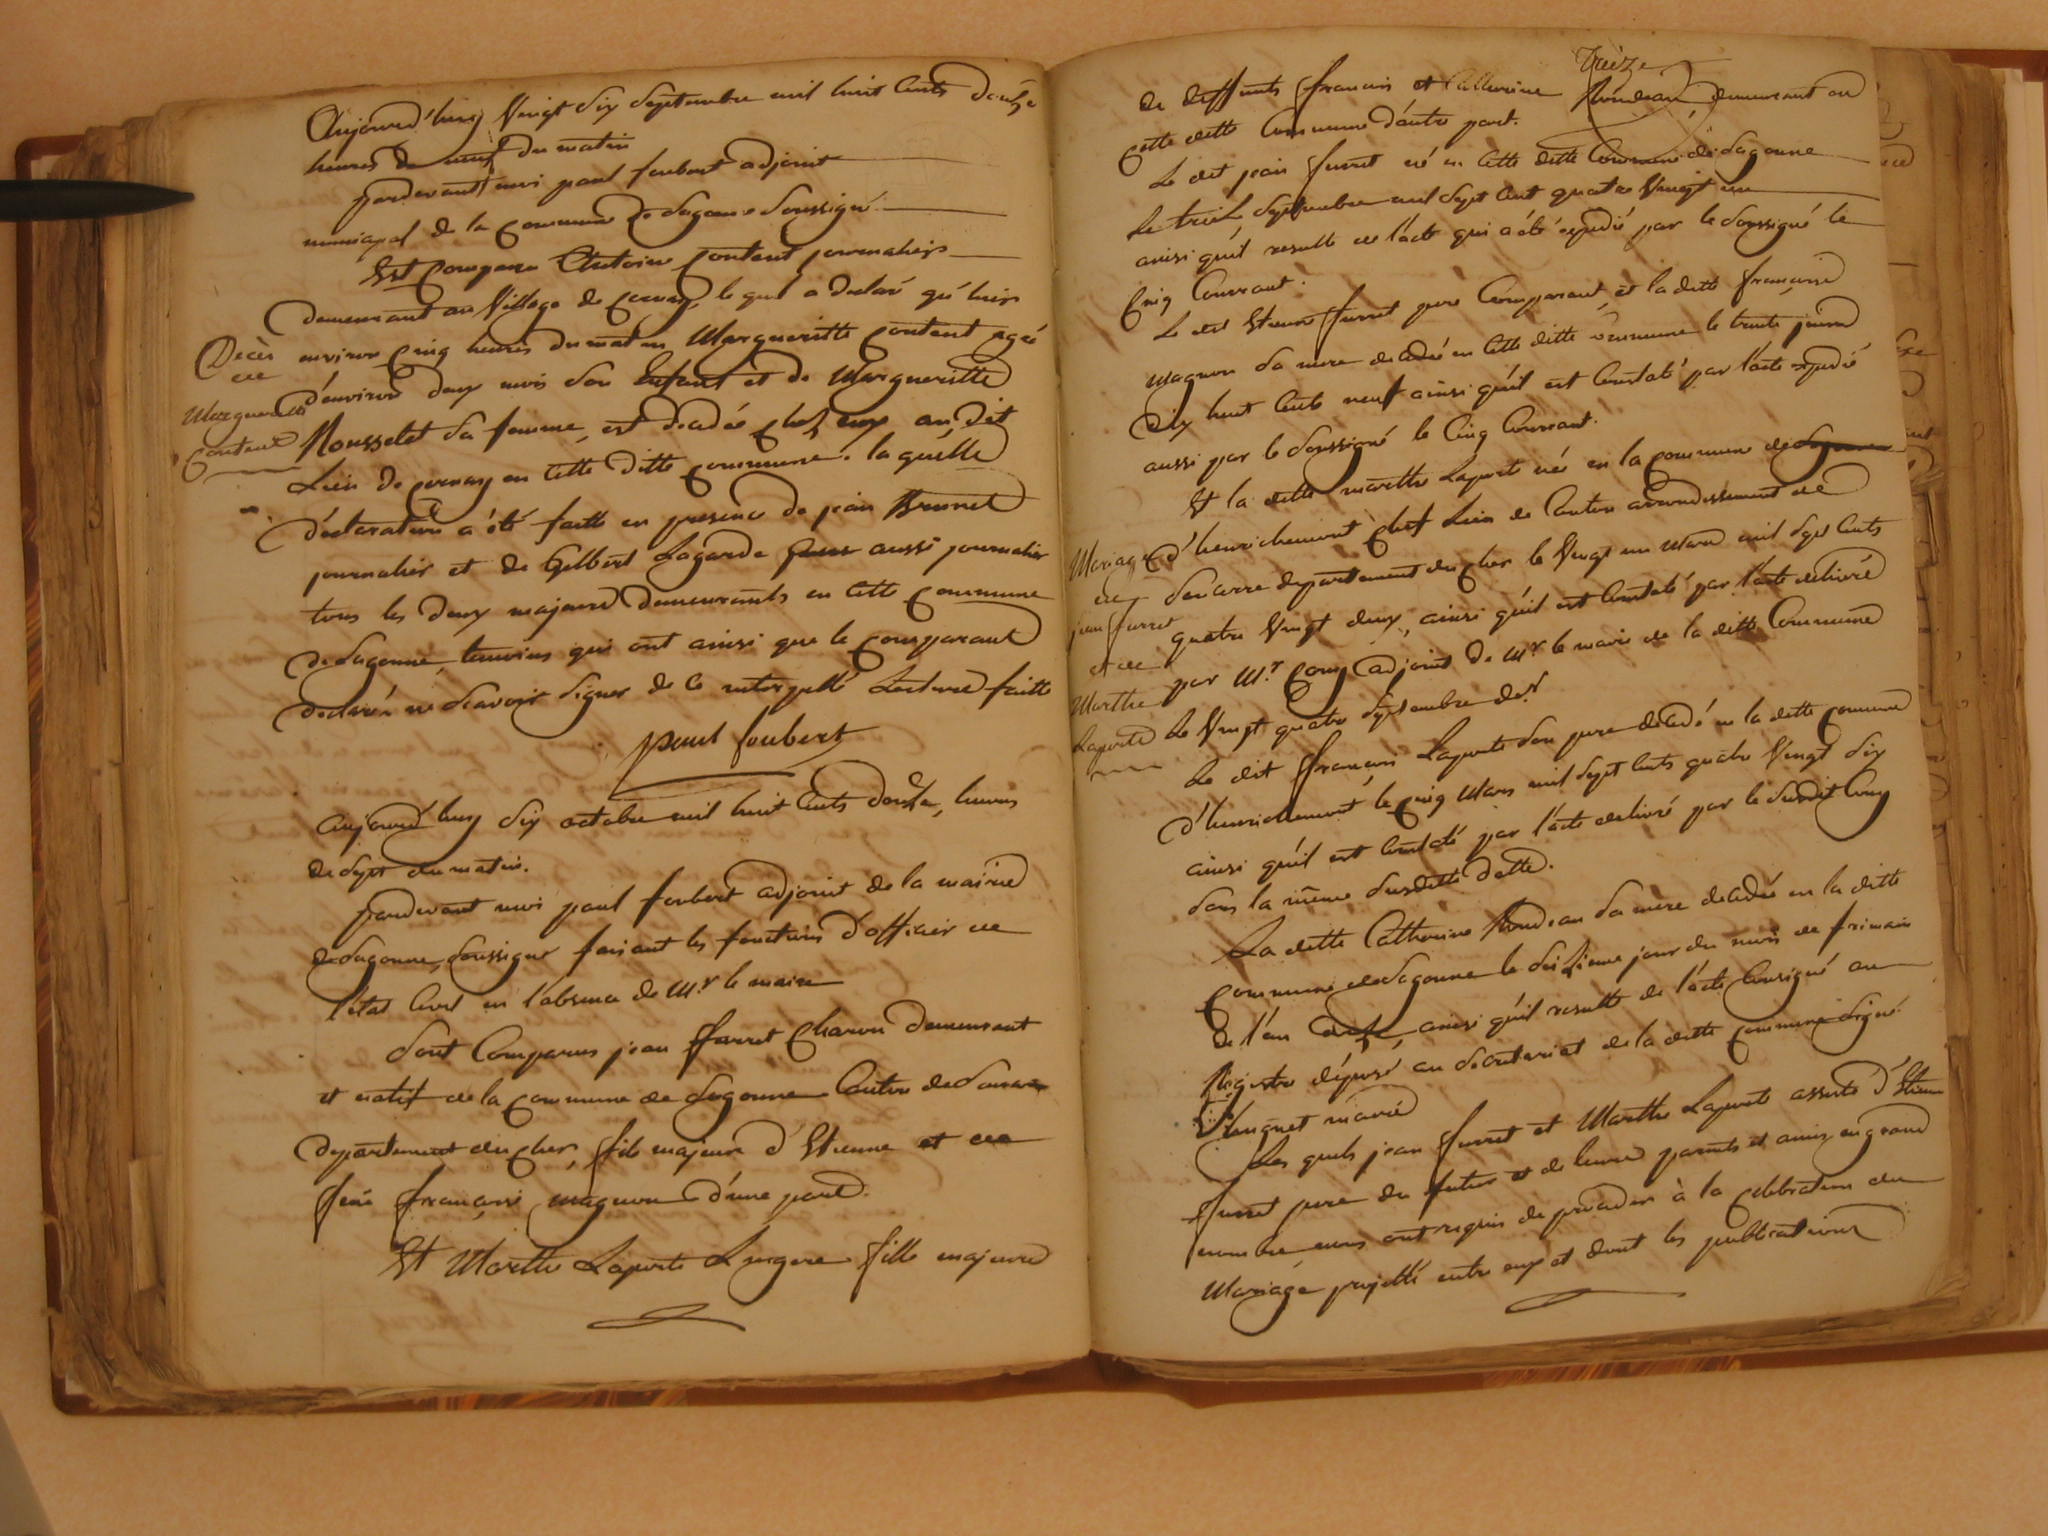 Aujourd'huy Vingt Six Septembre mil huit Cents douze
heures de neuf du matin
pardevant moi paul foubert adjoint
municipal de la Commune de Sagonne Soussigné
Est Comparu Antoine Content journalier
demeurant au Village de Cernay, le quel a declaré qu'hier
environ Cinq heures du matin Margueritte Content agée
d'environ deux mois Son Enfant et de Margueritte
Rousselet Sa femme, est decedée chez eux au dit
Lieu de Cernay en Cette ditte Commune. la quelle
declaration a été faitte en presence de jean Brunet
journalier et de Gilbert Lagarde aussi journalier
tous les deux majeurs demeurants en Cette Commune
de Sagonne, temoins qui ont ainsi que le Comparant
declaré ne Scavoir Signer de ce interpellé Lecture faitte
paul foubert
Decès
de
Margueritte
Content
aujourd'huy Six octobre mil huit Cents douze, heures
de Sept du matin.
pardevant moi paul foubert adjoint de la mairie
de Sagonne, Soussigné faisant les fonctions d'officier de
l'état Civil en l'absence de Mr le maire
Sont Comparus jean furret Charon demeurant
et natif de la Commune de Sagonne Canton de
departement du Cher, fils majeur d'Etienne et de
feue françoise magnon d'une part.
Et Marthe Laporte Lingere fille majeure
treize
de deffunts françois et Catherine Rondeau demeurant en
Cette ditte Commune d'autre part.
Le dit jean furret né en Cette ditte Commune de Sagonne
Le treize Septembre mil Sept Cent quatre Vingt un
ainsi qu'il resulte de l'acte qui a été expedié par le Soussigné le
Cinq Courrant.
Le dit Etienne furret pere Comparant, et la ditte françoise
magnon Sa mere decedée en Cette ditte Commune le trente
dix huit Cents neuf ainsi qu'il est Constaté par l'acte expedié
aussi par le Soussigné le Cinq Courrant.
Et la ditte marthe Laporte née en la Commune
d'henrichemont Chef Lieu de Canton arrondissement de
Sancerre departement du Cher le Vingt un Mars mil Sept Cents
quatre Vingt deux, ainsi qu'il est Constaté par l'acte delivré
par Mr adjoint de Mr le maire de la ditte Commune
Le Vingt quatre Septembre der
Le dit françois Laporte Son pere decedé en la ditte Commune
d'henrichemont le Cinq Mars mil Sept Cents quatre Vingt dix
ainsi qu'il est Constaté par l'acte delivré par le Susdit
Sous la même Susditte datte.
La ditte Catherine Rondeau Sa mere decedée en la ditte
Commune de Sagonne le Seizieme jour du mois de frimaire
de l'an ainsi qu'il resulte de l'acte Consigné au
Registre déposé au Secretariat de la ditte Commune Signé
Les quels jean furret et Marthe Laporte assistés d'Etienne
furret pere du futur et de leurs parents et amis en grand
nombre nous ont requis de proceder à la Celebration du
Mariage projetté entre eux et dont les publications
Mariage
de
jean furret
et de
Marthe
Laporte